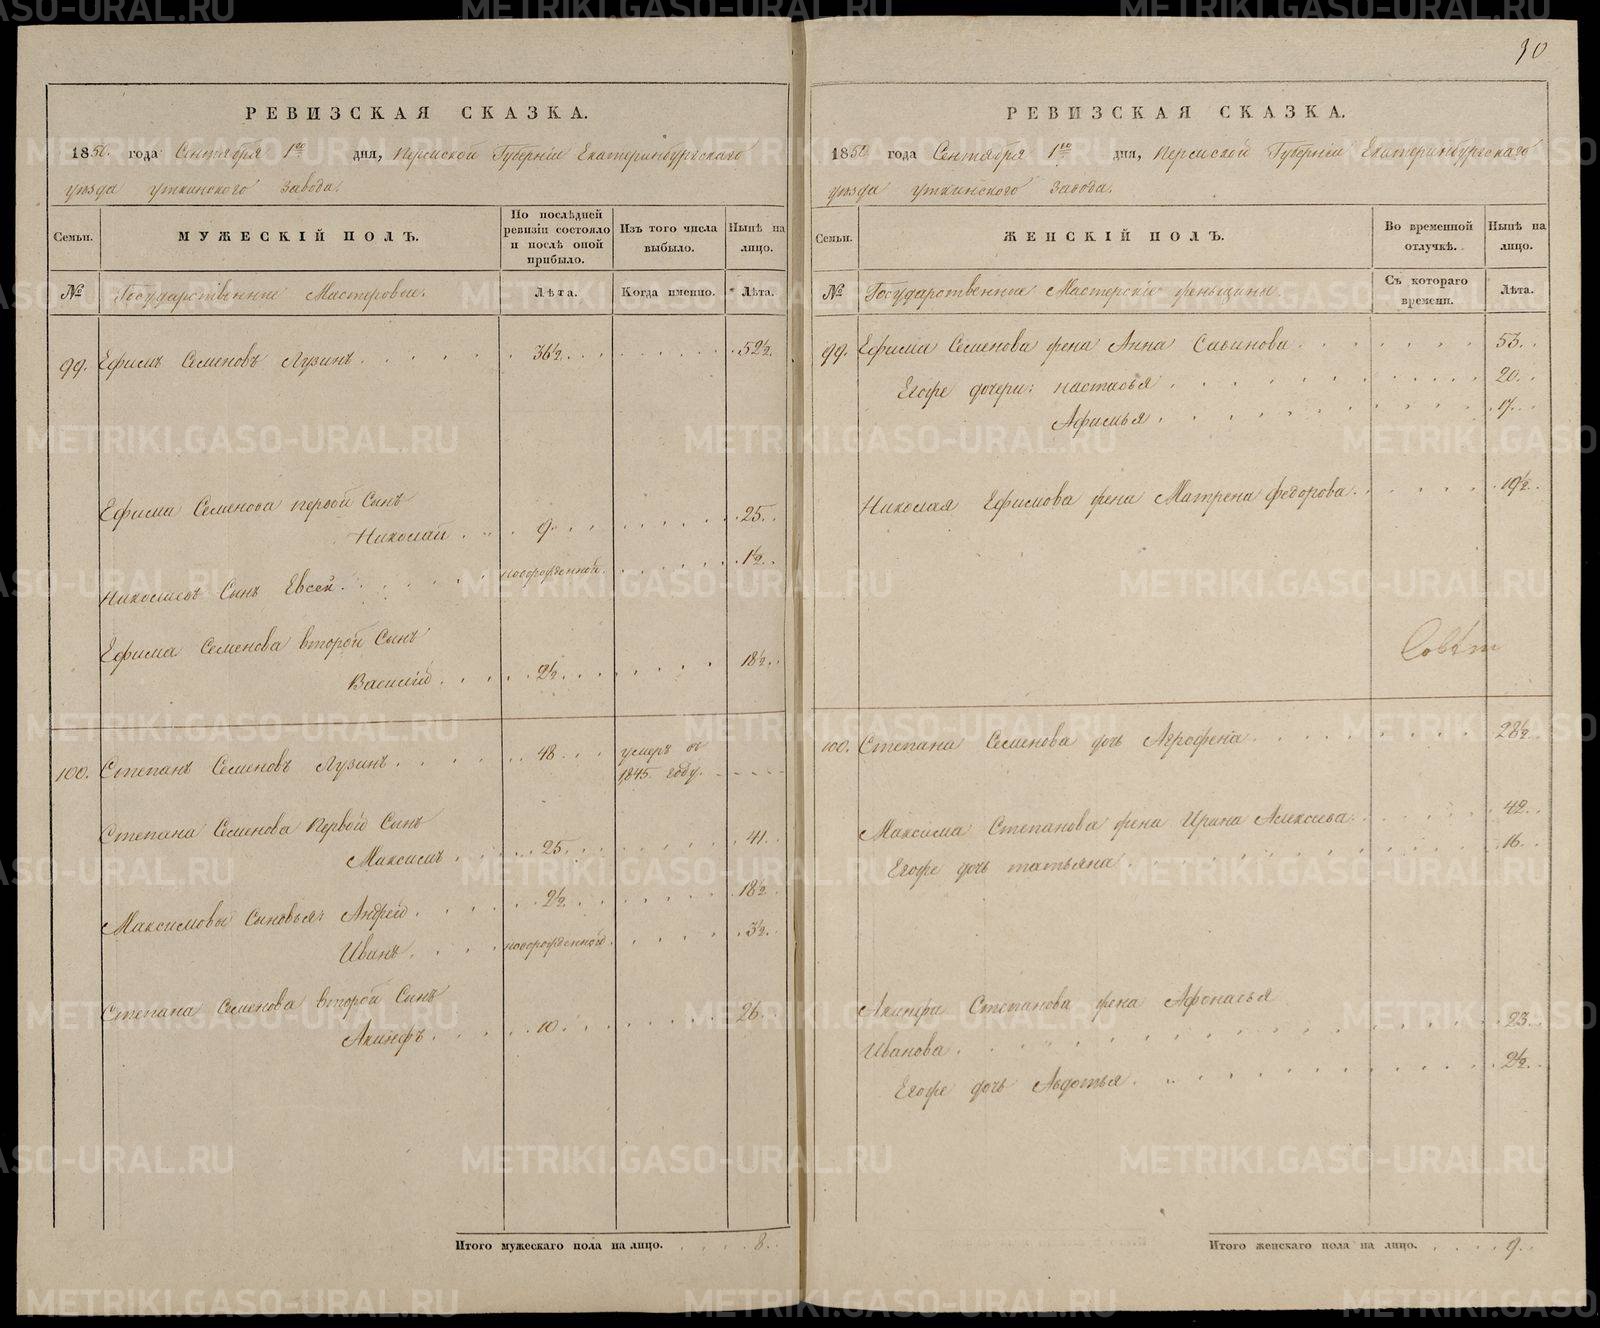 90
РЕВИЗСКАЯ СКАЗКА.
1850. года Сентября 1го дня, Пермской Губерніи Екатеринбургскаго
уѣзда уткинского завода.
Семьи.
МУЖЕСКІЙ ПОЛЪ.
По послѣдней ревизіи состояло и послѣ оной прибыло.
Изъ того числа выбыло.
Нынѣ на лицо.
№
Государственные Мастеровые.
Лѣта.
Когда именно.
Лѣта.
99. Ефимъ Семеновъ Лузинъ 36½ 52½
Ефима Семенова первой Сынъ
Николай 9 25
Николаевъ Сынъ Евсей новорожденной 1½
Ефима Семенова второй Сынъ
Василій 2½ 18½
100. Степанъ Семеновъ Лузинъ 48 умеръ въ
1845 году.
Степана Семенова Первой Сынъ
Максимъ 25 41
Максимовы Сыновья: Андрей 2½ 18½
Иванъ новорожденной 3½
Степана Семенова второй Сынъ
Акинфъ 10 26
Итого мужескаго пола на лицо. 8.
РЕВИЗСКАЯ СКАЗКА.
1850 года Сентября 1го дня, Пермской Губерніи Екатеринбургскаго
уѣзда уткинского завода.
Семьи.
ЖЕНСКІЙ ПОЛЪ.
Во временной отлучкѣ.
Нынѣ на лицо.
№
Государственные Мастерскіе женьщины.
Съ котораго времени.
Лѣта.
99. Ефима Семенова жена Анна Савинова 53
Егоже дочери: настасья 20
Афимья 17
Николая Ефимова жена Матрена Федорова 19½
100. Степана Семенова дочь Агрофена 28½
Максима Степанова жена Ирина Алексѣева 42
Егоже дочь татьяна 16
Акинфи Степанова жена Афонасья
Иванова 23
Егоже дочь Авдотья 2½
Итого женскаго пола на лицо. 9.
METRIKI.GASO-URAL.RU